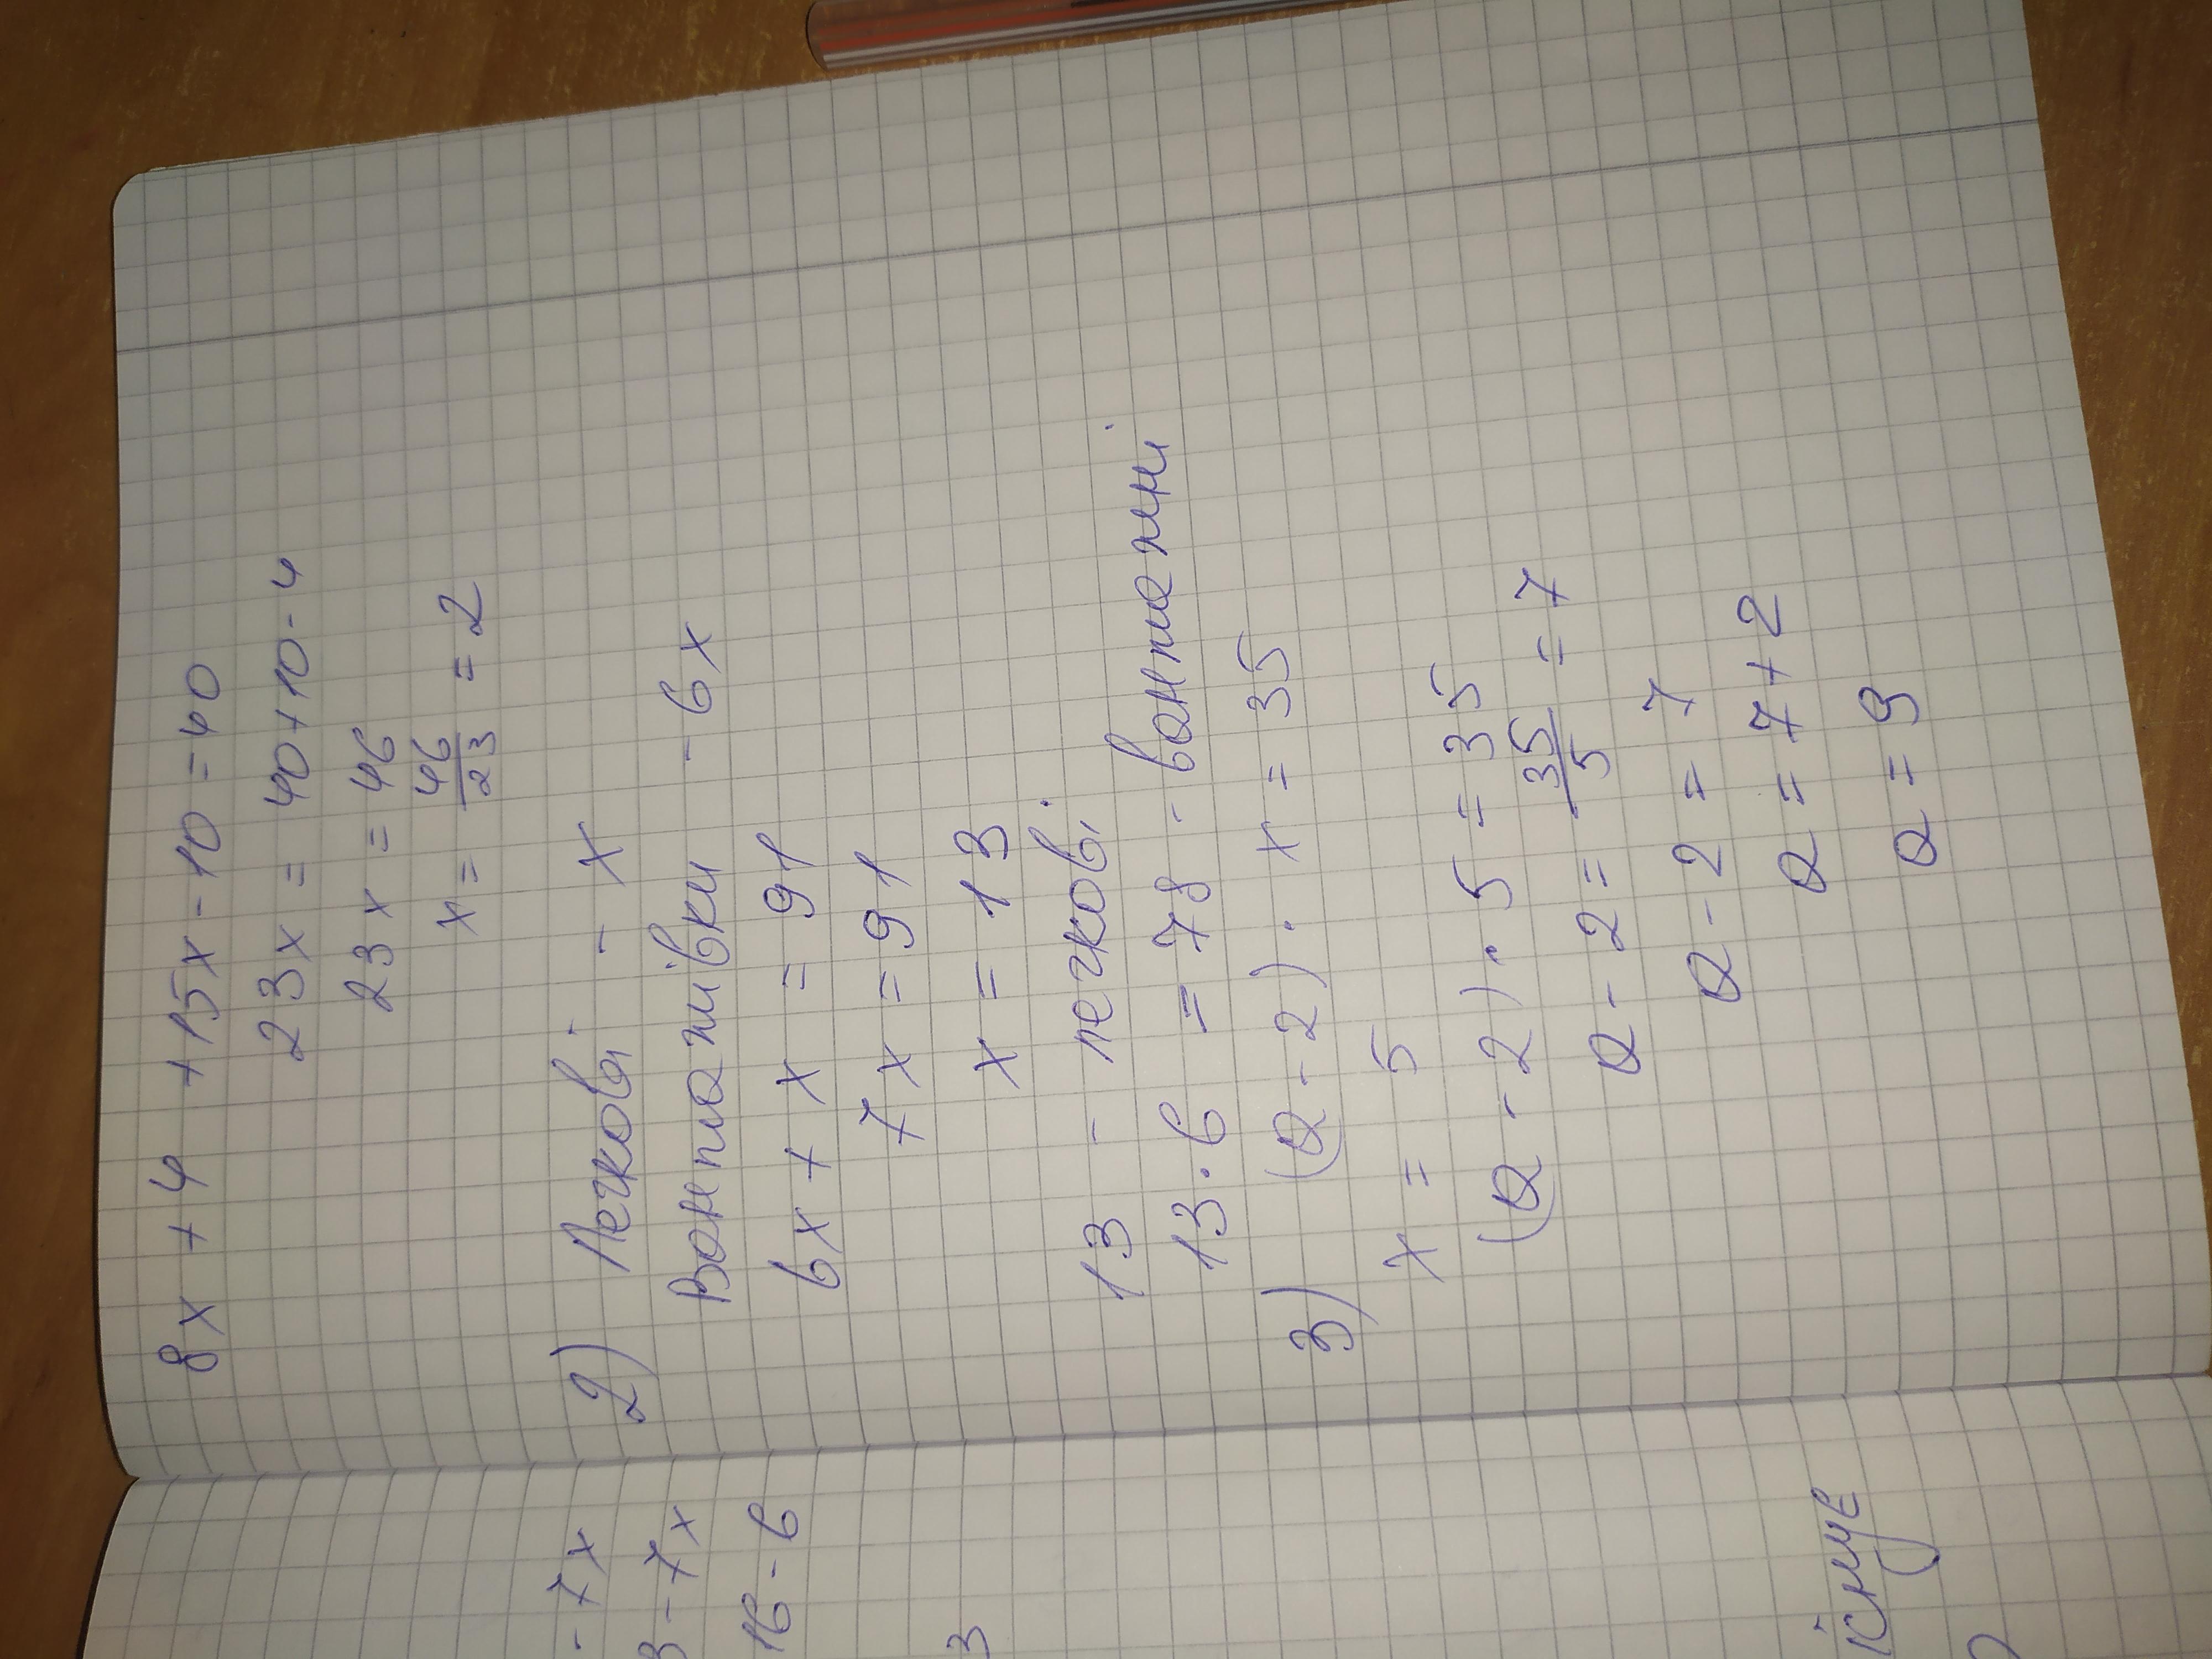 - 7x
3 - 7x
16 - 6
3
існує
8x + 4 + 15x - 10 = 40
23x = 40 + 10 - 4
23x = 46
x = 46/23 = 2
2) Легкові - x
Вантажівки - 6x
6x + x = 91
7x = 91
x = 13
13 - легкові.
13 · 6 = 78 - вантажні
3) (a - 2) · x = 35
x = 5
(a - 2) · 5 = 35
a - 2 = 35/5 = 7
a - 2 = 7
a = 7 + 2
a = 9